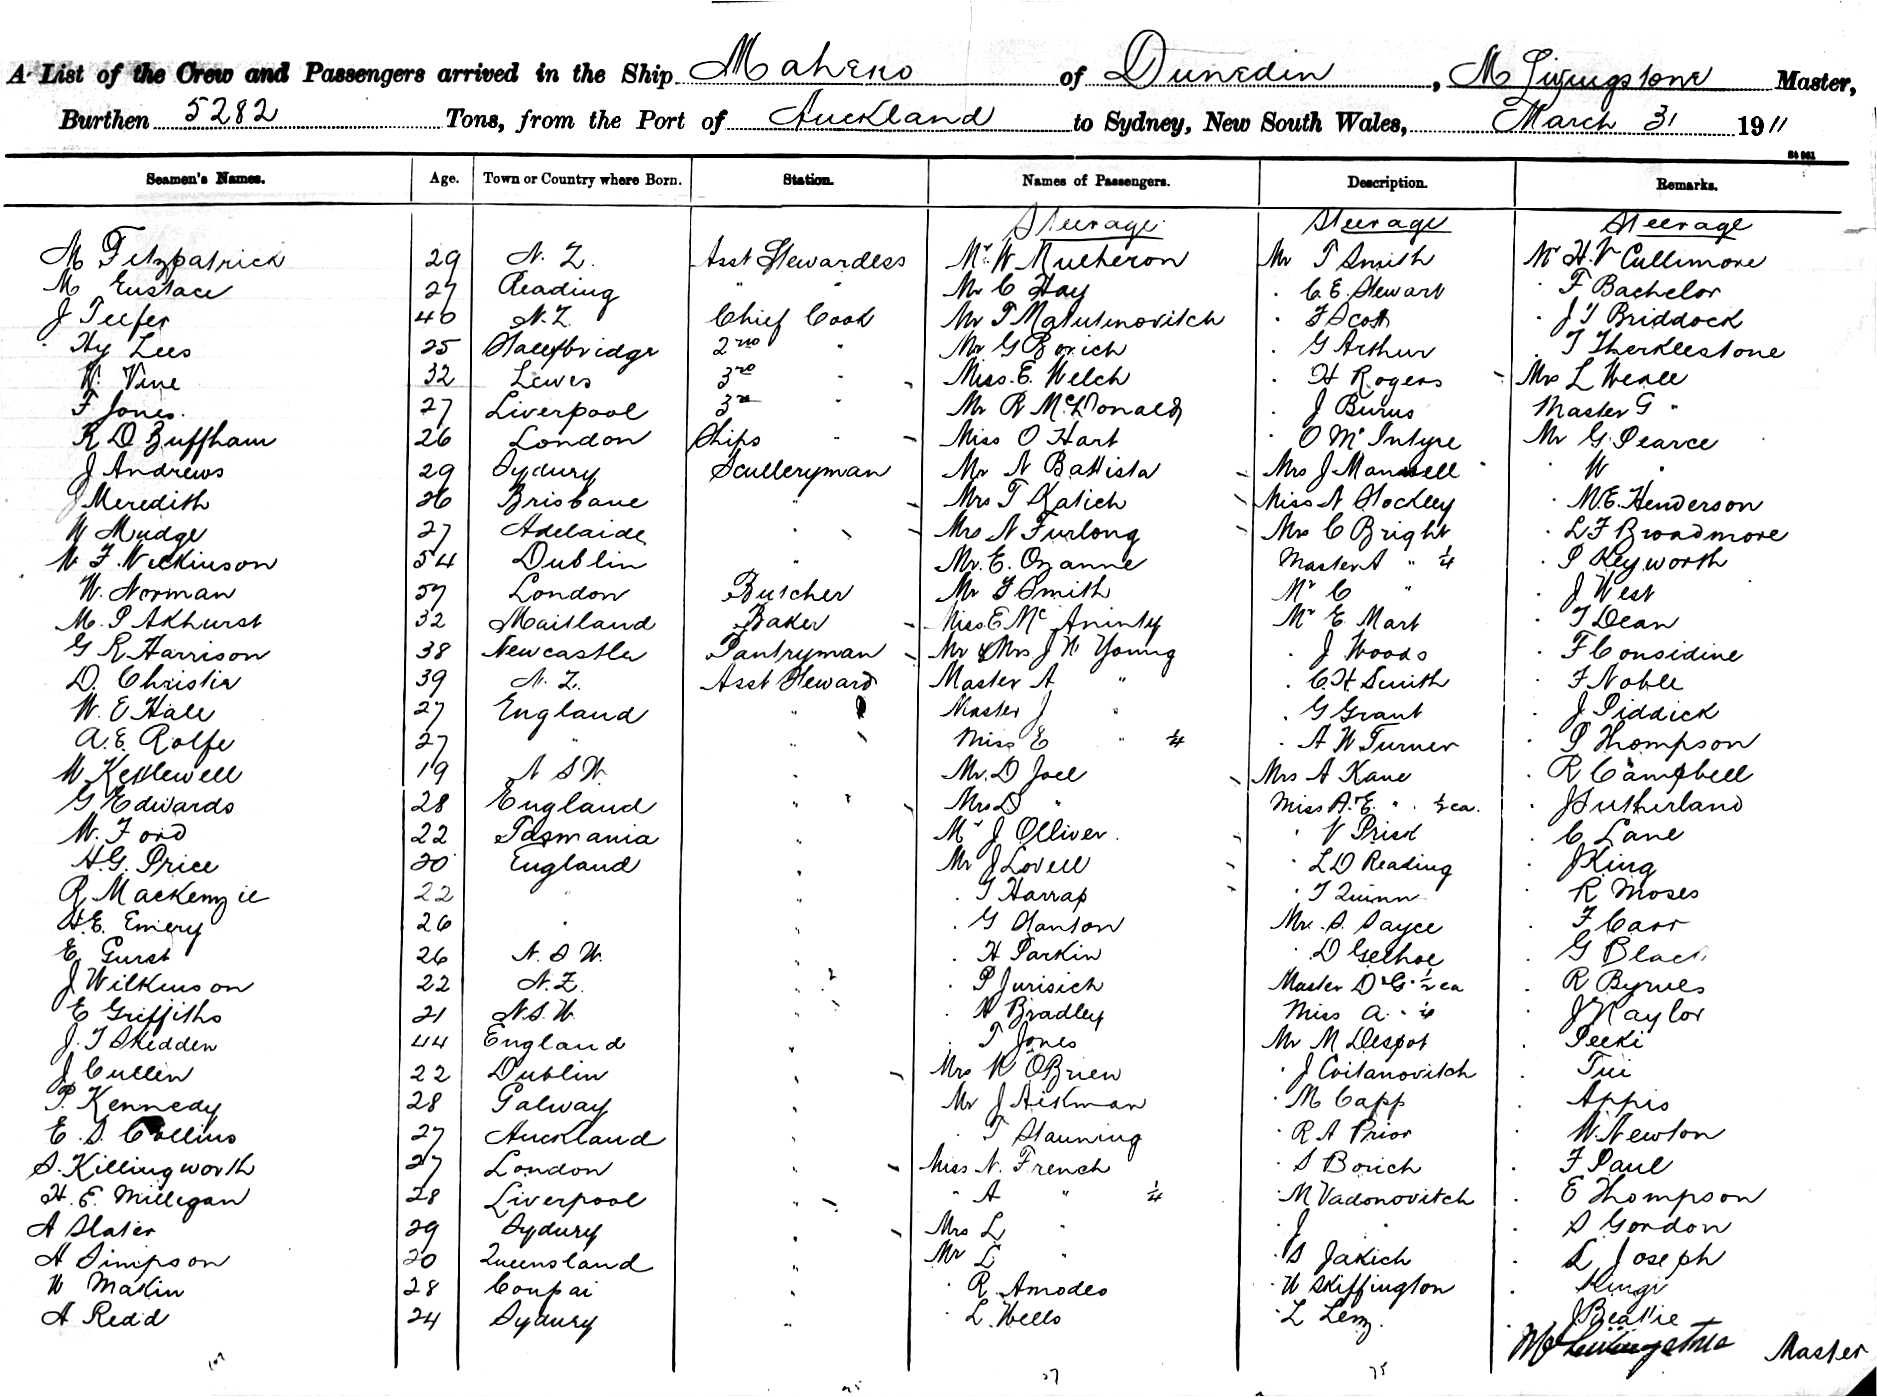 A List of the Crew and Passengers arrived in the Ship Maheno of Dunedin, M Livingstone Master,
Burthen 5282 Tons, from the Port of Auckland to Sydney, New South Wales, March 31 1911
Seamen's Names. Age. Town or Country where Born. Station. Names of Passengers. Description. Remarks.
Steerage Steerage Steerage
M Fitzpatrick 29 N. Z. Asst Stewardess Mr W Mutheron Mr T Smith Mr H. V Cullimore
M Eustace 27 Reading " " Mr C Hay . C. E. Stewart . F Bachelor
J Teefer 40 N. Z. Chief Cook Mr T Matutinovitch . F Scott . J T Briddock
Hy Lees 25 Stalybridge 2nd " Mr G Borich . G Arthur . T Therklestone
W. Vine 32 Lewes 3rd " Miss. E. Welch . H Rogers Mrs L Weale
F Jones. 27 Liverpool 3rd " Mr R McDonald . J Burns Master G "
R D Buffham 26 London Ships " Miss O Hart . O McIntyre Mr G. Pearce
J Andrews 29 Sydney Sculleryman Mr N Battista Mrs J Mansell . W "
J Meredith 26 Brisbane " Mrs T Katich Miss N Stockley . M. E. Henderson
W Mudge 27 Adelaide " Mrs N Furlong Mrs C Bright . L F Broadmore
W F. Wilkinson 54 Dublin " Mr. E. Ozanne Master A " 1/4 . P Keyworth
W. Norman 57 London Butcher Mr F Smith Mr C " . J West
M. P Akhurst 32 Maitland Baker Miss E Mc Aninty Mr E Mart . T Dean
G R Harrison 38 Newcastle Pantryman Mr & Mrs J W Young . J Woods . F Considine
D. Christie 39 N. Z. Asst Steward Master A " . C. H Smith . F Noble
W. E Hale 27 England " Master J " . G Grant . J Piddick
A. E. Rolfe 27 " " Miss E " 1/4 . A W Turner . P Thompson
W Kettlewell 19 N S W. " Mr. D Joel Mrs A Kane . R Campbell
G Edwards 28 England " Mrs D " Miss A. E. " 1/2 ea. . J Sutherland
W. Ford 22 Tasmania " Mr J Olliver. . V Prisk . C Lane
H. G. Price 20 England " Mr J Lovell . L D Reading . J King
R Mackenzie 22 " " . T Harrap . T Quinn . R Moses
H. E. Emery 26 " " . G Stanton Mr. S. Sayce . F Carr
E Gurst 26 N. S W. " . H Parkin . D Gethoe . G Black
J Wilkinson 22 N. Z. " . P Jurisich Master D & G. 1/2 ea . R Byrnes
E Griffiths 21 N. S. W. " . W Bradley Miss A. " 1/4 . J Naylor
J. T Skedden 44 England " . T Jones Mr M Despot . Peeki
J Cullen 22 Dublin " Mrs K O'Brien . J Coitanovitch . Tui
P. Kennedy 28 Galway " Mr J Aikman . M Capp . Appis
E. S. Collins 27 Auckland " . T Stanning . R A Prior . W. Newton
S. Killingworth 27 London " Miss N. French . S Borich . F Paul
H. E. Milligan 28 Liverpool " " A " 1/4 . M Vadonovitch . E Thompson
A Slater 29 Sydney " Mrs L " . J " . S Gordon
A Simpson 20 Queensland " Mr L " . S Jakich . L Joseph
W Makin 28 " . R. Amodeo . W Skiffington . Kingi
A Redd 24 Sydney " . L. Wells . L Lenz. . J Beattie
M Livingstone Master